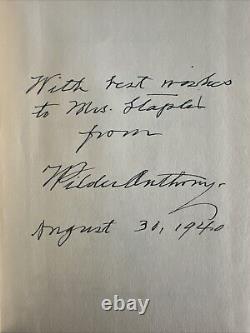 With best wishes
to Mrs. Staples
from
Wilder Anthony.
August 30, 1940
ebay